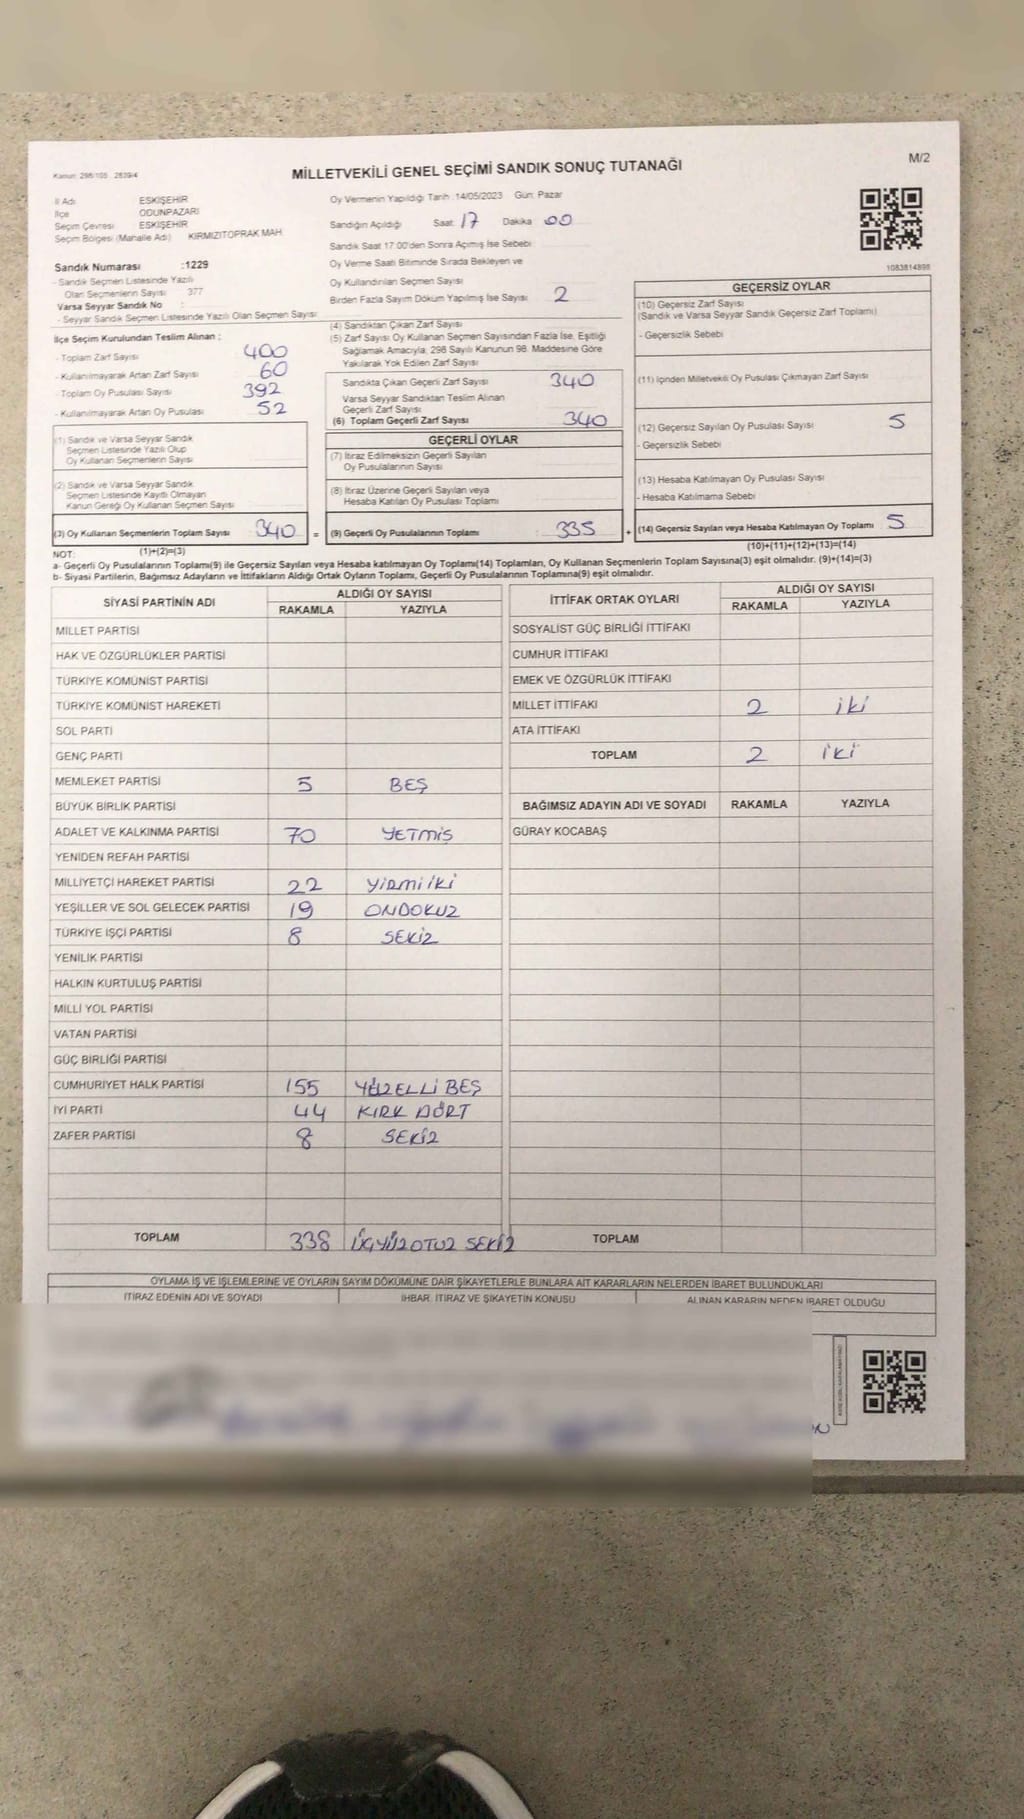 M/2
Kanun: 298/105 . 2839/4
MİLLETVEKİLİ GENEL SEÇİMİ SANDIK SONUÇ TUTANAĞI
İl Adı ESKİŞEHİR
İlçe ODUNPAZARI
Seçim Çevresi ESKİŞEHİR
Seçim Bölgesi (Mahalle Adı) KIRMIZITOPRAK MAH.
Sandık Numarası :1229
- Sandık Seçmen Listesinde Yazılı
Olan Seçmenlerin Sayısı 377
Varsa Seyyar Sandık No :
- Seyyar Sandık Seçmen Listesinde Yazılı Olan Seçmen Sayısı:
Oy Vermenin Yapıldığı Tarih: 14/05/2023 Gün: Pazar
Sandığın Açıldığı Saat: 17 Dakika 00
Sandık Saat 17:00'den Sonra Açımış İse Sebebi:
Oy Verme Saati Bitiminde Sırada Bekleyen ve
Oy Kullandırılan Seçmen Sayısı
Birden Fazla Sayım Döküm Yapılmış İse Sayısı: 2
1083814898
İlçe Seçim Kurulundan Teslim Alınan :
- Toplam Zarf Sayısı 400
- Kullanılmayarak Artan Zarf Sayısı 60
- Toplam Oy Pusulası Sayısı 392
- Kullanılmayarak Artan Oy Pusulası 52
(1) Sandık ve Varsa Seyyar Sandık
Seçmen Listesinde Yazılı Olup
Oy Kullanan Seçmenlerin Sayısı
(2) Sandık ve Varsa Seyyar Sandık
Seçmen Listesinde Kayıtlı Olmayan
Kanun Gereği Oy Kullanan Seçmen Sayısı
(3) Oy Kullanan Seçmenlerin Toplam Sayısı 340 =
(4) Sandıktan Çıkan Zarf Sayısı
(5) Zarf Sayısı Oy Kullanan Seçmen Sayısından Fazla İse, Eşitliği
Sağlamak Amacıyla, 298 Sayılı Kanunun 98. Maddesine Göre
Yakılarak Yok Edilen Zarf Sayısı
Sandıkta Çıkan Geçerli Zarf Sayısı 340
Varsa Seyyar Sandıktan Teslim Alınan
Geçerli Zarf Sayısı
(6) Toplam Geçerli Zarf Sayısı 340
GEÇERLİ OYLAR
(7) İtiraz Edilmeksizin Geçerli Sayılan
Oy Pusulalarının Sayısı
(8) İtiraz Üzerine Geçerli Sayılan veya
Hesaba Katılan Oy Pusulası Toplamı
(9) Geçerli Oy Pusulalarının Toplamı : 335 +
GEÇERSİZ OYLAR
(10) Geçersiz Zarf Sayısı
(Sandık ve Varsa Seyyar Sandık Geçersiz Zarf Toplamı)
- Geçersizlik Sebebi
(11) İçinden Milletvekili Oy Pusulası Çıkmayan Zarf Sayısı
(12) Geçersiz Sayılan Oy Pusulası Sayısı 5
- Geçersizlik Sebebi
(13) Hesaba Katılmayan Oy Pusulası Sayısı
- Hesaba Katılmama Sebebi
(14) Geçersiz Sayılan veya Hesaba Katılmayan Oy Toplamı 5
NOT: (1)+(2)=(3) (10)+(11)+(12)+(13)=(14)
a- Geçerli Oy Pusulaları Toplamı(9) ile Geçersiz Sayılan veya Hesaba katılmayan Oy Toplamı(14) Toplamları, Oy Kullanan Seçmenlerin Toplam Sayısına(3) eşit olmalıdır. (9)+(14)=(3)
b- Siyasi Partilerin, Bağımsız Adayların ve İttifakların Aldığı Ortak Oyların Toplamı, Geçerli Oy Pusulalarının Toplamına(9) eşit olmalıdır.
SİYASİ PARTİNİN ADI ALDIĞI OY SAYISI
RAKAMLA YAZIYLA
MİLLET PARTİSİ
HAK VE ÖZGÜRLÜKLER PARTİSİ
TÜRKİYE KOMÜNİST PARTİSİ
TÜRKİYE KOMÜNİST HAREKETİ
SOL PARTİ
GENÇ PARTİ
MEMLEKET PARTİSİ 5 BEŞ
BÜYÜK BİRLİK PARTİSİ
ADALET VE KALKINMA PARTİSİ 70 YETMİŞ
YENİDEN REFAH PARTİSİ
MİLLİYETÇİ HAREKET PARTİSİ 22 YİRMİ İKİ
YEŞİLLER VE SOL GELECEK PARTİSİ 19 ONDOKUZ
TÜRKİYE İŞÇİ PARTİSİ 8 SEKİZ
YENİLİK PARTİSİ
HALKIN KURTULUŞ PARTİSİ
MİLLİ YOL PARTİSİ
VATAN PARTİSİ
GÜÇ BİRLİĞİ PARTİSİ
CUMHURİYET HALK PARTİSİ 155 YÜZELLİ BEŞ
İYİ PARTİ 44 KIRK DÖRT
ZAFER PARTİSİ 8 SEKİZ
TOPLAM 338 ÜÇYÜZOTUZ SEKİZ
İTTİFAK ORTAK OYLARI ALDIĞI OY SAYISI
RAKAMLA YAZIYLA
SOSYALİST GÜÇ BİRLİĞİ İTTİFAKI
CUMHUR İTTİFAKI
EMEK VE ÖZGÜRLÜK İTTİFAKI
MİLLET İTTİFAKI 2 iki
ATA İTTİFAKI
TOPLAM 2 iki
BAĞIMSIZ ADAYIN ADI VE SOYADI RAKAMLA YAZIYLA
GÜRAY KOCABAŞ
TOPLAM
OYLAMA İŞ VE İŞLEMLERİNE VE OYLARIN SAYIM DÖKÜMÜNE DAİR ŞİKAYETLERLE BUNLARA AİT KARARLARIN NELERDEN İBARET BULUNDUKLARI
İTİRAZ EDENİN ADI VE SOYADI İHBAR, İTİRAZ VE ŞİKAYETİN KONUSU ALINAN KARARIN NEDEN İBARET OLDUĞU